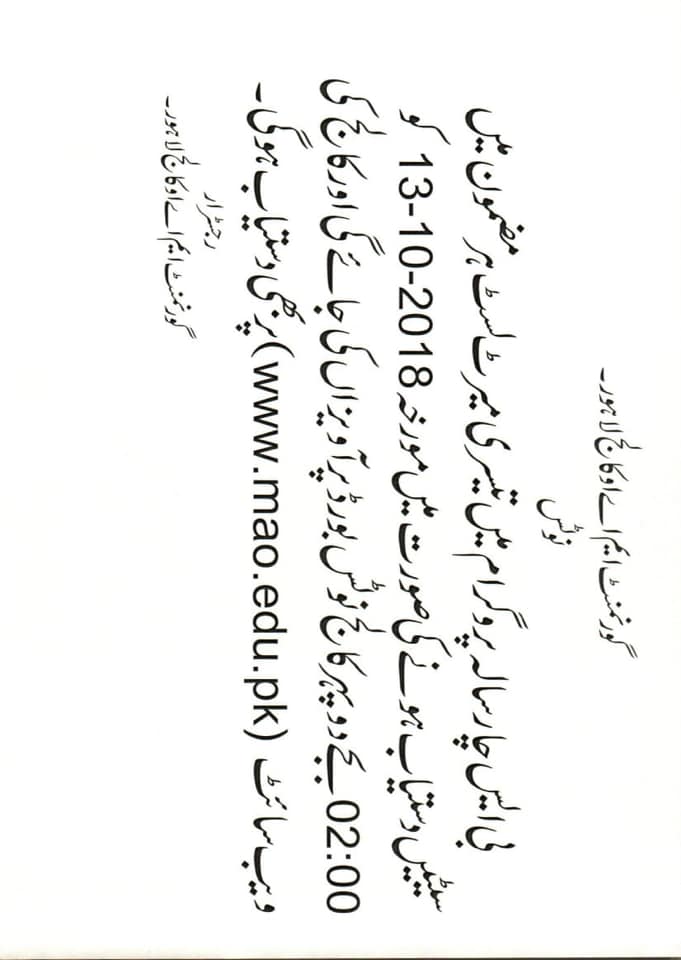 گورنمنٹ ایم اے او کالج لاہور۔
نوٹس
بی ایس چار سالہ پروگرام میں تیسری میرٹ لسٹ ہر مضمون میں
سیٹیں دستیاب ہونے کی صورت میں مورخہ 13-10-2018 کو
02:00 بجے دوپہر کالج نوٹس بورڈ پر آویزاں کی جائے گی اور کالج کی
ویب سائٹ (www.mao.edu.pk) پر بھی دستیاب ہوگی۔
رجسٹرار
گورنمنٹ ایم اے او کالج لاہور۔